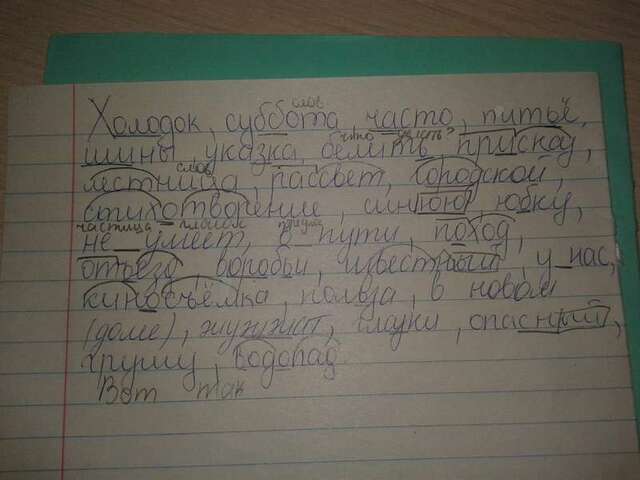 слов
Холодок, суббота, часто, питьё,
что делать?
шины, указка, белить, присказ,
слов
лестница, рассвет, городской,
стихотворение, синюю юбку,
частица глагол предлог
не умеет, в пути, поход,
отъезд, воробьи, известный, у нас,
киносъёмка, польза, в новом
(доме), жужжит, гладки, опасный,
грушу, водопад.
Вот так